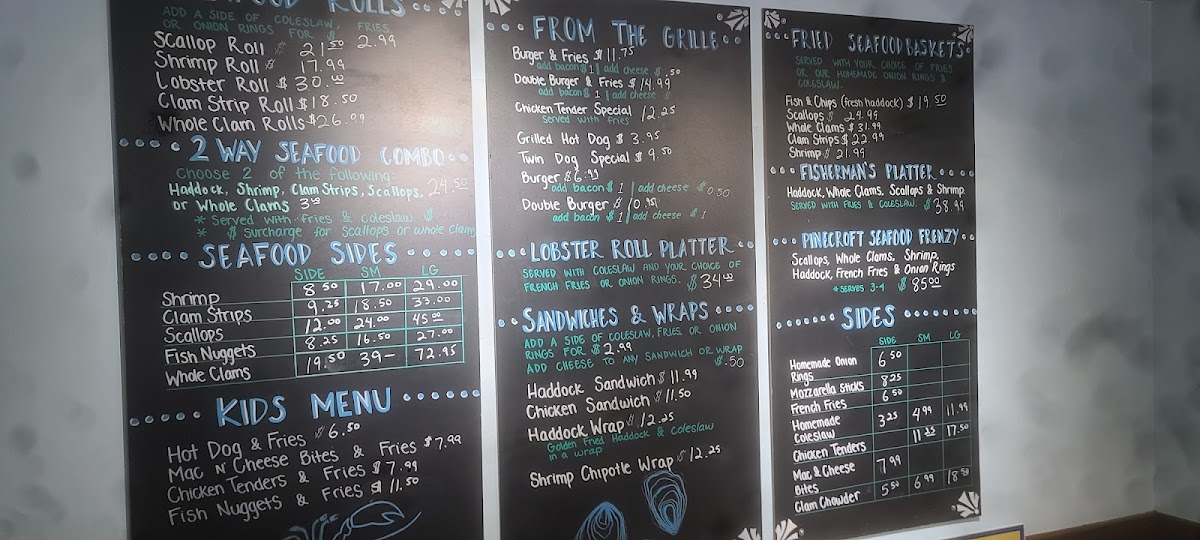 SEAFOOD ROLLS
ADD A SIDE OF COLESLAW, FRIES,
OR ONION RINGS FOR $ 2.99
Scallop Roll $ 21.50
Shrimp Roll $ 17.99
Lobster Roll $ 30.00
Clam Strip Roll $ 18.50
Whole Clam Rolls $ 26.99
2 WAY SEAFOOD COMBO
Choose 2 of the following:
Haddock, Shrimp, Clam Strips, Scallops, 24.50
or Whole Clams 3.00
* Served with fries & coleslaw. $
* $ surcharge for scallops or whole clams
SEAFOOD SIDES
SIDE SM LG
Shrimp 8.50 17.00 29.00
Clam Strips 9.25 18.50 33.00
Scallops 12.00 24.00 45.00
Fish Nuggets 8.25 16.50 27.00
Whole Clams 19.50 39- 72.95
KIDS MENU
Hot Dog & Fries $ 6.50
Mac N Cheese Bites & Fries $ 7.99
Chicken Tenders & Fries $ 7.99
Fish Nuggets & Fries $ 11.50
FROM THE GRILLE
Burger & Fries $ 11.75
add bacon $ 1 | add cheese $ .50
Double Burger & Fries $ 14.99
add bacon $ 1 | add cheese $
Chicken Tender Special 12.25
Served with fries
Grilled Hot Dog $ 3.95
Twin Dog Special $ 9.50
Burger $ 6.99
add bacon $ 1 | add cheese $ 0.50
Double Burger $ 10.95
add bacon $ 1 | add cheese $ 1
LOBSTER ROLL PLATTER
SERVED WITH COLESLAW AND YOUR CHOICE OF
FRENCH FRIES OR ONION RINGS. $ 34.00
SANDWICHES & WRAPS
ADD A SIDE OF COLESLAW, FRIES, OR ONION
RINGS FOR $ 2.99
ADD CHEESE TO ANY SANDWICH OR WRAP
$ .50
Haddock Sandwich $ 11.99
Chicken Sandwich $ 11.50
Haddock Wrap $ 12.25
Golden Fried Haddock & Coleslaw
in a wrap
Shrimp Chipotle Wrap $ 12.25
FRIED SEAFOOD BASKETS
SERVED WITH YOUR CHOICE OF FRIES
OR OUR HOMEMADE ONION RINGS &
COLESLAW.
Fish & Chips (fresh haddock) $ 19.50
Scallops $ 24.99
Whole Clams $ 31.99
Clam Strips $ 22.99
Shrimp $ 21.99
FISHERMAN'S PLATTER
Haddock, Whole Clams, Scallops & Shrimp
SERVED WITH FRIES & COLESLAW. $ 38.99
PINECROFT SEAFOOD FRENZY
Scallops, Whole Clams, Shrimp,
Haddock, French Fries & Onion Rings
* SERVES 3-4 $ 85.00
SIDES
SIDE SM LG
Homemade Onion
Rings 6.50
Mozzarella Sticks 8.25
French Fries 6.50
Homemade
Coleslaw 3.25 4.99 11.99
Chicken Tenders 17.50
Mac & Cheese
Bites 7.99
Clam Chowder 5.50 6.99 18.50